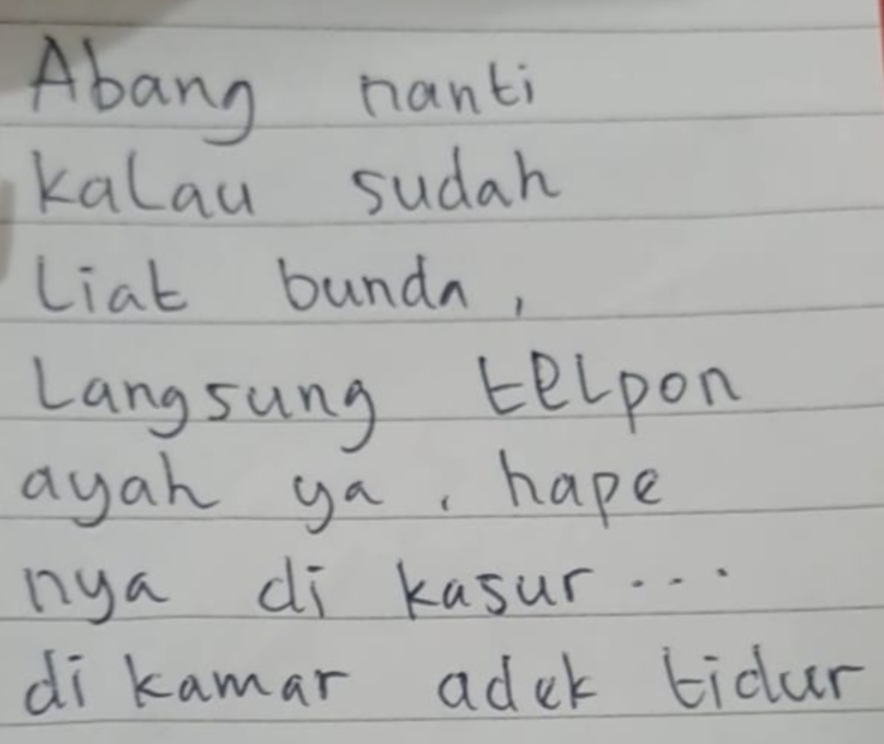 Abang nanti
kalau sudah
liat bunda,
Langsung telpon
ayah ya, hape
nya di kasur...
di kamar adek tidur